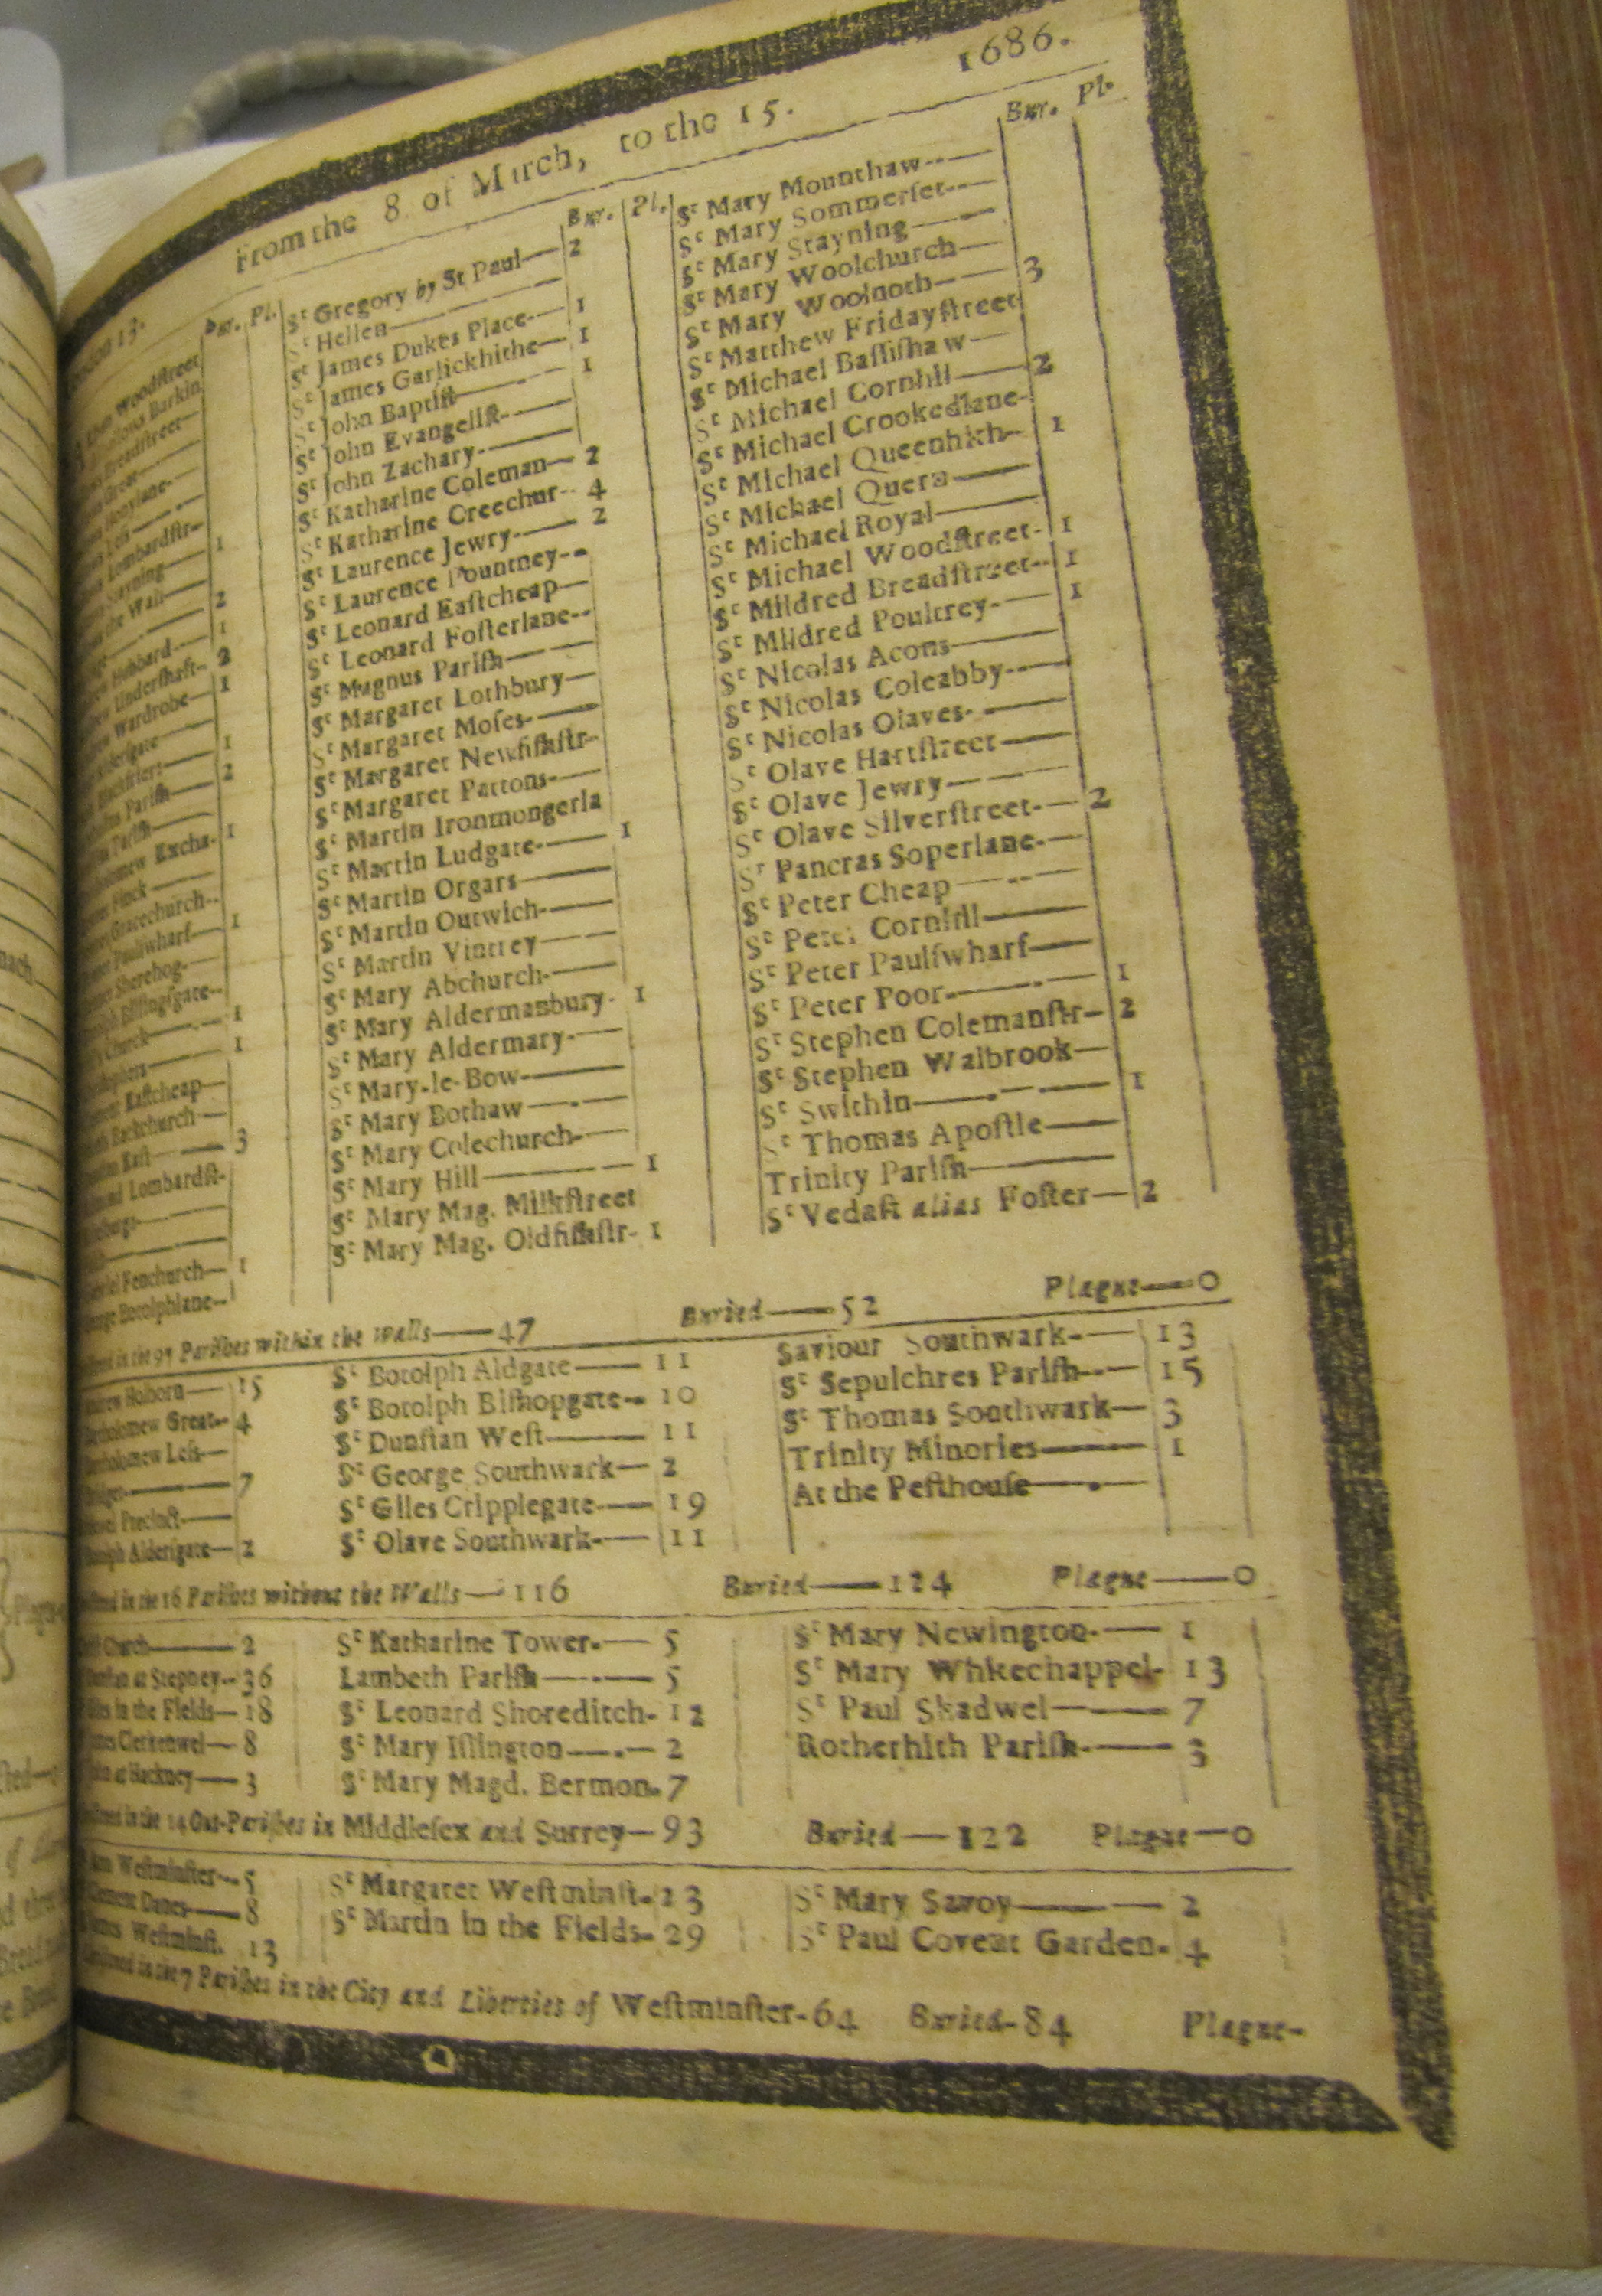 From the 8 of March, to the 15. 1686.
Bur. Pl.
Woodstreet
Barkin
Breadstreet
Great
Less
Lombardstr-
Stayning 1
the Wall
2
Hubbard 1
Undershaft 3
Wardrobe 1
Aldersgate
Blackfriers 1
Parish 2
Parish
Excha- 1
Finck
Gracechurch
Paulswharf 1
Sherehog
Billingsgate
Church 1
1
Eastcheap
Backchurch
East 3
Lombardst-
Fenchurch 1
Botolphlane
Bur. Pl.
Sᵗ Gregory by St Paul 2
Sᵗ Hellen
Sᵗ James Dukes Place 1
Sᵗ James Garlickhithe 1
Sᵗ John Baptist 1
Sᵗ John Evangelist
Sᵗ John Zachary
Sᵗ Katharine Coleman 2
Sᵗ Katharine Creechur 4
Sᵗ Laurence Jewry 2
Sᵗ Laurence Pountney
Sᵗ Leonard Eastcheap
Sᵗ Leonard Fosterlane
Sᵗ Magnus Parish
Sᵗ Margaret Lothbury
Sᵗ Margaret Moses
Sᵗ Margaret Newfishstr-
Sᵗ Margaret Pattons
Sᵗ Martin Ironmongerla
Sᵗ Martin Ludgate 1
Sᵗ Martin Orgars
Sᵗ Martin Outwich
Sᵗ Martin Vintrey
Sᵗ Mary Abchurch
Sᵗ Mary Aldermanbury 1
Sᵗ Mary Aldermary
Sᵗ Mary-le-Bow
Sᵗ Mary Bothaw
Sᵗ Mary Colechurch
Sᵗ Mary Hill 1
Sᵗ Mary Mag. Milkstreet
Sᵗ Mary Mag. Oldfishstr- 1
Bur. Pl.
Sᵗ Mary Mounthaw
Sᵗ Mary Sommerset
Sᵗ Mary Stayning
Sᵗ Mary Woolchurch
Sᵗ Mary Woolnoth 3
Sᵗ Matthew Fridaystreet
Sᵗ Michael Bassishaw
Sᵗ Michael Cornhill 2
Sᵗ Michael Crookedlane
Sᵗ Michael Queenhith 1
Sᵗ Michael Quern
Sᵗ Michael Royal
Sᵗ Michael Woodstreet 1
Sᵗ Mildred Breadstreet 1
Sᵗ Mildred Poultrey 1
Sᵗ Nicolas Acons
Sᵗ Nicolas Coleabby
Sᵗ Nicolas Olaves
Sᵗ Olave Hartstreet
Sᵗ Olave Jewry
Sᵗ Olave Silverstreet 2
Sᵗ Pancras Soperlane
Sᵗ Peter Cheap
Sᵗ Peter Cornhill
Sᵗ Peter Paulswharf
Sᵗ Peter Poor 1
Sᵗ Stephen Colemanstr- 2
Sᵗ Stephen Walbrook
Sᵗ Swithin 1
Sᵗ Thomas Apostle
Trinity Parish
Sᵗ Vedast alias Foster 2
in the 97 Parishes within the Walls 47 Buried 52 Plague 0
Holborn 15
Great 4
Bartholomew Less
7
Precinct
Aldersgate 2
Sᵗ Botolph Aldgate 11
Sᵗ Botolph Bishopgate 10
Sᵗ Dunstan West 11
Sᵗ George Southwark 2
Sᵗ Giles Cripplegate 19
Sᵗ Olave Southwark 11
Saviour Southwark 13
Sᵗ Sepulchres Parish 15
Sᵗ Thomas Southwark 3
Trinity Minories 1
At the Pesthouse
in the 16 Parishes without the Walls 116 Buried 124 Plague 0
Church 2
at Stepney 36
in the Fields 18
Clerkenwel 8
at Hackney 3
Sᵗ Katharine Tower 5
Lambeth Parish 5
Sᵗ Leonard Shoreditch 12
Sᵗ Mary Islington 2
Sᵗ Mary Magd. Bermon. 7
Sᵗ Mary Newington 1
Sᵗ Mary Whitechappel 13
Sᵗ Paul Shadwel 7
Rotherhith Parish 3
in the 14 Out-Parishes in Middlesex and Surrey 93 Buried 122 Plague 0
Westminster 5
Clement Danes 8
Westminst. 13
Sᵗ Margaret Westminst- 23
Sᵗ Martin in the Fields 29
Sᵗ Mary Savoy 2
Sᵗ Paul Covent Garden 4
in the 7 Parishes in the City and Liberties of Westminster-64 Buried-84 Plague-